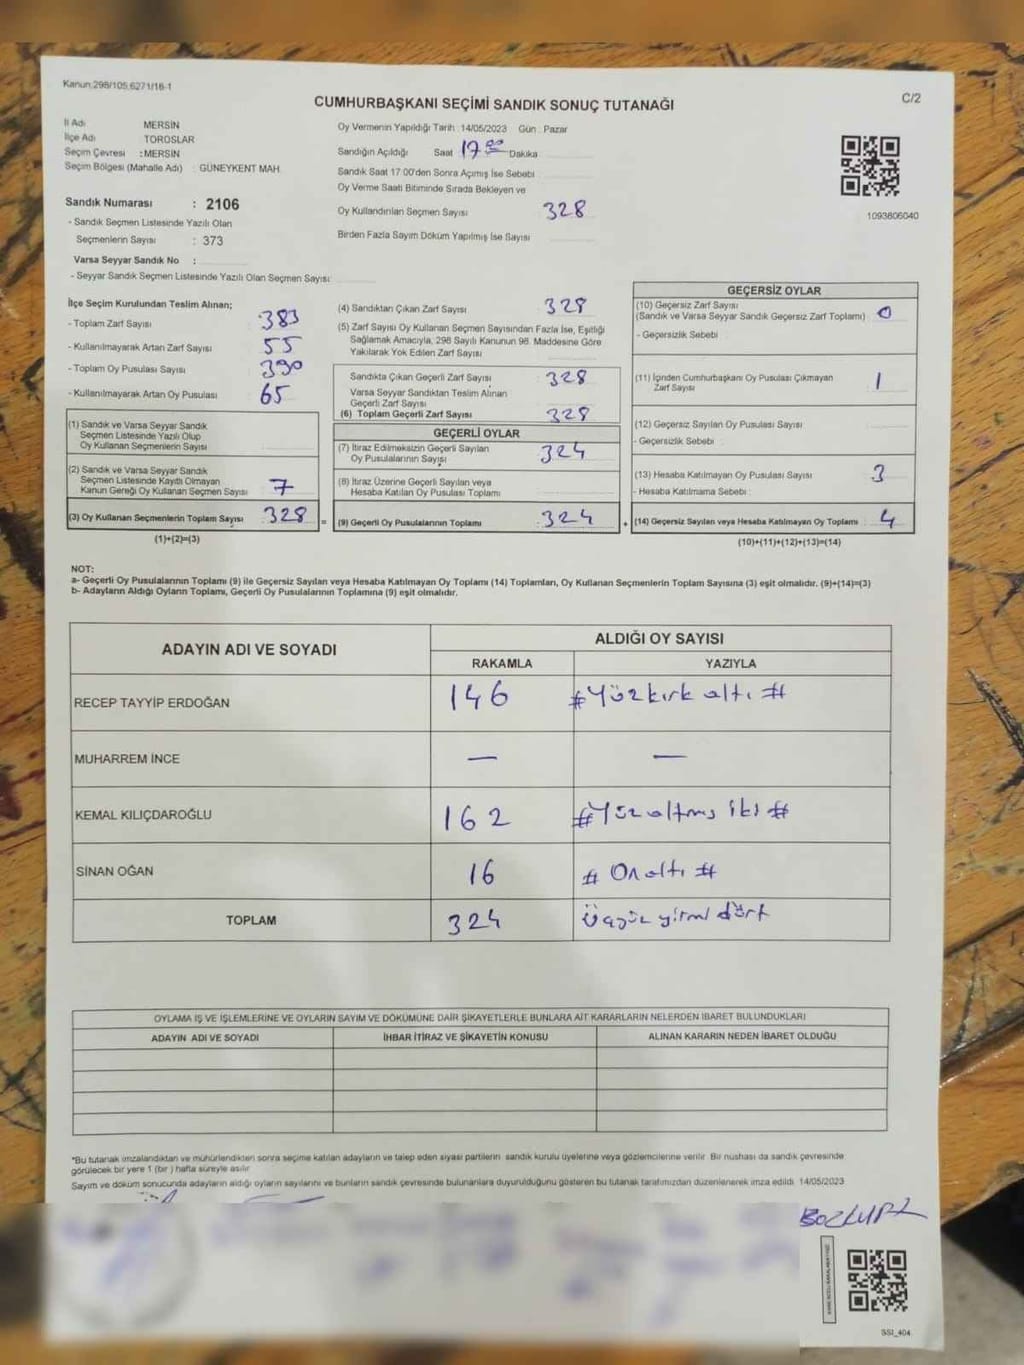 Kanun:298/105,6271/16-1
C/2
CUMHURBAŞKANI SEÇİMİ SANDIK SONUÇ TUTANAĞI
İl Adı MERSİN
İlçe Adı TOROSLAR
Seçim Çevresi : MERSİN
Seçim Bölgesi (Mahalle Adı) : GÜNEYKENT MAH.
Oy Vermenin Yapıldığı Tarih : 14/05/2023 Gün : Pazar
Sandığın Açıldığı Saat 17 00 Dakika
Sandık Saat 17:00'den Sonra Açılmış İse Sebebi
Oy Verme Saati Bitiminde Sırada Bekleyen ve
Oy Kullandırılan Seçmen Sayısı 328
Birden Fazla Sayım Döküm Yapılmış İse Sayısı
1093806040
Sandık Numarası : 2106
- Sandık Seçmen Listesinde Yazılı Olan
Seçmenlerin Sayısı : 373
Varsa Seyyar Sandık No :
- Seyyar Sandık Seçmen Listesinde Yazılı Olan Seçmen Sayısı:
İlçe Seçim Kurulundan Teslim Alınan;
- Toplam Zarf Sayısı : 383
- Kullanılmayarak Artan Zarf Sayısı : 55
- Toplam Oy Pusulası Sayısı : 390
- Kullanılmayarak Artan Oy Pusulası : 65
(1) Sandık ve Varsa Seyyar Sandık
Seçmen Listesinde Yazılı Olup
Oy Kullanan Seçmenlerin Sayısı
(2) Sandık ve Varsa Seyyar Sandık
Seçmen Listesinde Kayıtlı Olmayan
Kanun Gereği Oy Kullanan Seçmen Sayısı 7
(3) Oy Kullanan Seçmenlerin Toplam Sayısı : 328 =
(1)+(2)=(3)
(4) Sandıktan Çıkan Zarf Sayısı 328
(5) Zarf Sayısı Oy Kullanan Seçmen Sayısından Fazla İse, Eşitliği
Sağlamak Amacıyla, 298 Sayılı Kanunun 98. Maddesine Göre
Yakılarak Yok Edilen Zarf Sayısı
Sandıkta Çıkan Geçerli Zarf Sayısı : 328
Varsa Seyyar Sandıktan Teslim Alınan
Geçerli Zarf Sayısı
(6) Toplam Geçerli Zarf Sayısı 328
GEÇERLİ OYLAR
(7) İtiraz Edilmeksizin Geçerli Sayılan
Oy Pusulalarının Sayısı 324
(8) İtiraz Üzerine Geçerli Sayılan veya
Hesaba Katılan Oy Pusulası Toplamı
(9) Geçerli Oy Pusulalarının Toplamı : 324 +
GEÇERSİZ OYLAR
(10) Geçersiz Zarf Sayısı
(Sandık ve Varsa Seyyar Sandık Geçersiz Zarf Toplamı) 0
- Geçersizlik Sebebi :
(11) İçinden Cumhurbaşkanı Oy Pusulası Çıkmayan
Zarf Sayısı 1
(12) Geçersiz Sayılan Oy Pusulası Sayısı
- Geçersizlik Sebebi
(13) Hesaba Katılmayan Oy Pusulası Sayısı 3
- Hesaba Katılmama Sebebi :
(14) Geçersiz Sayılan veya Hesaba Katılmayan Oy Toplamı : 4
(10)+(11)+(12)+(13)=(14)
NOT:
a- Geçerli Oy Pusulalarının Toplamı (9) ile Geçersiz Sayılan veya Hesaba Katılmayan Oy Toplamı (14) Toplamları, Oy Kullanan Seçmenlerin Toplam Sayısına (3) eşit olmalıdır. (9)+(14)=(3)
b- Adayların Aldığı Oyların Toplamı, Geçerli Oy Pusulalarının Toplamına (9) eşit olmalıdır.
ADAYIN ADI VE SOYADI
ALDIĞI OY SAYISI
RAKAMLA YAZIYLA
RECEP TAYYİP ERDOĞAN 146 #Yüzkırk altı #
MUHARREM İNCE — —
KEMAL KILIÇDAROĞLU 162 #Yüz altmış iki #
SİNAN OĞAN 16 # On altı #
TOPLAM 324 Üçyüz yirmi dört
OYLAMA İŞ VE İŞLEMLERİNE VE OYLARIN SAYIM VE DÖKÜMÜNE DAİR ŞİKAYETLERLE BUNLARA AİT KARARLARIN NELERDEN İBARET BULUNDUKLARI
ADAYIN ADI VE SOYADI İHBAR İTİRAZ VE ŞİKAYETİN KONUSU ALINAN KARARIN NEDEN İBARET OLDUĞU
*Bu tutanak imzalandıktan ve mühürlendikten sonra seçime katılan adayların ve talep eden siyasi partilerin sandık kurulu üyelerine veya gözlemcilerine verilir. Bir nüshası da sandık çevresinde
görülecek bir yere 1 (bir) hafta süreyle asılır.
Sayım ve döküm sonucunda adayların aldığı oyların sayılarını ve bunların sandık çevresinde bulunanlara duyurulduğunu gösteren bu tutanak tarafımızdan düzenlenerek imza edildi. 14/05/2023
BOZKURT
SSI_404